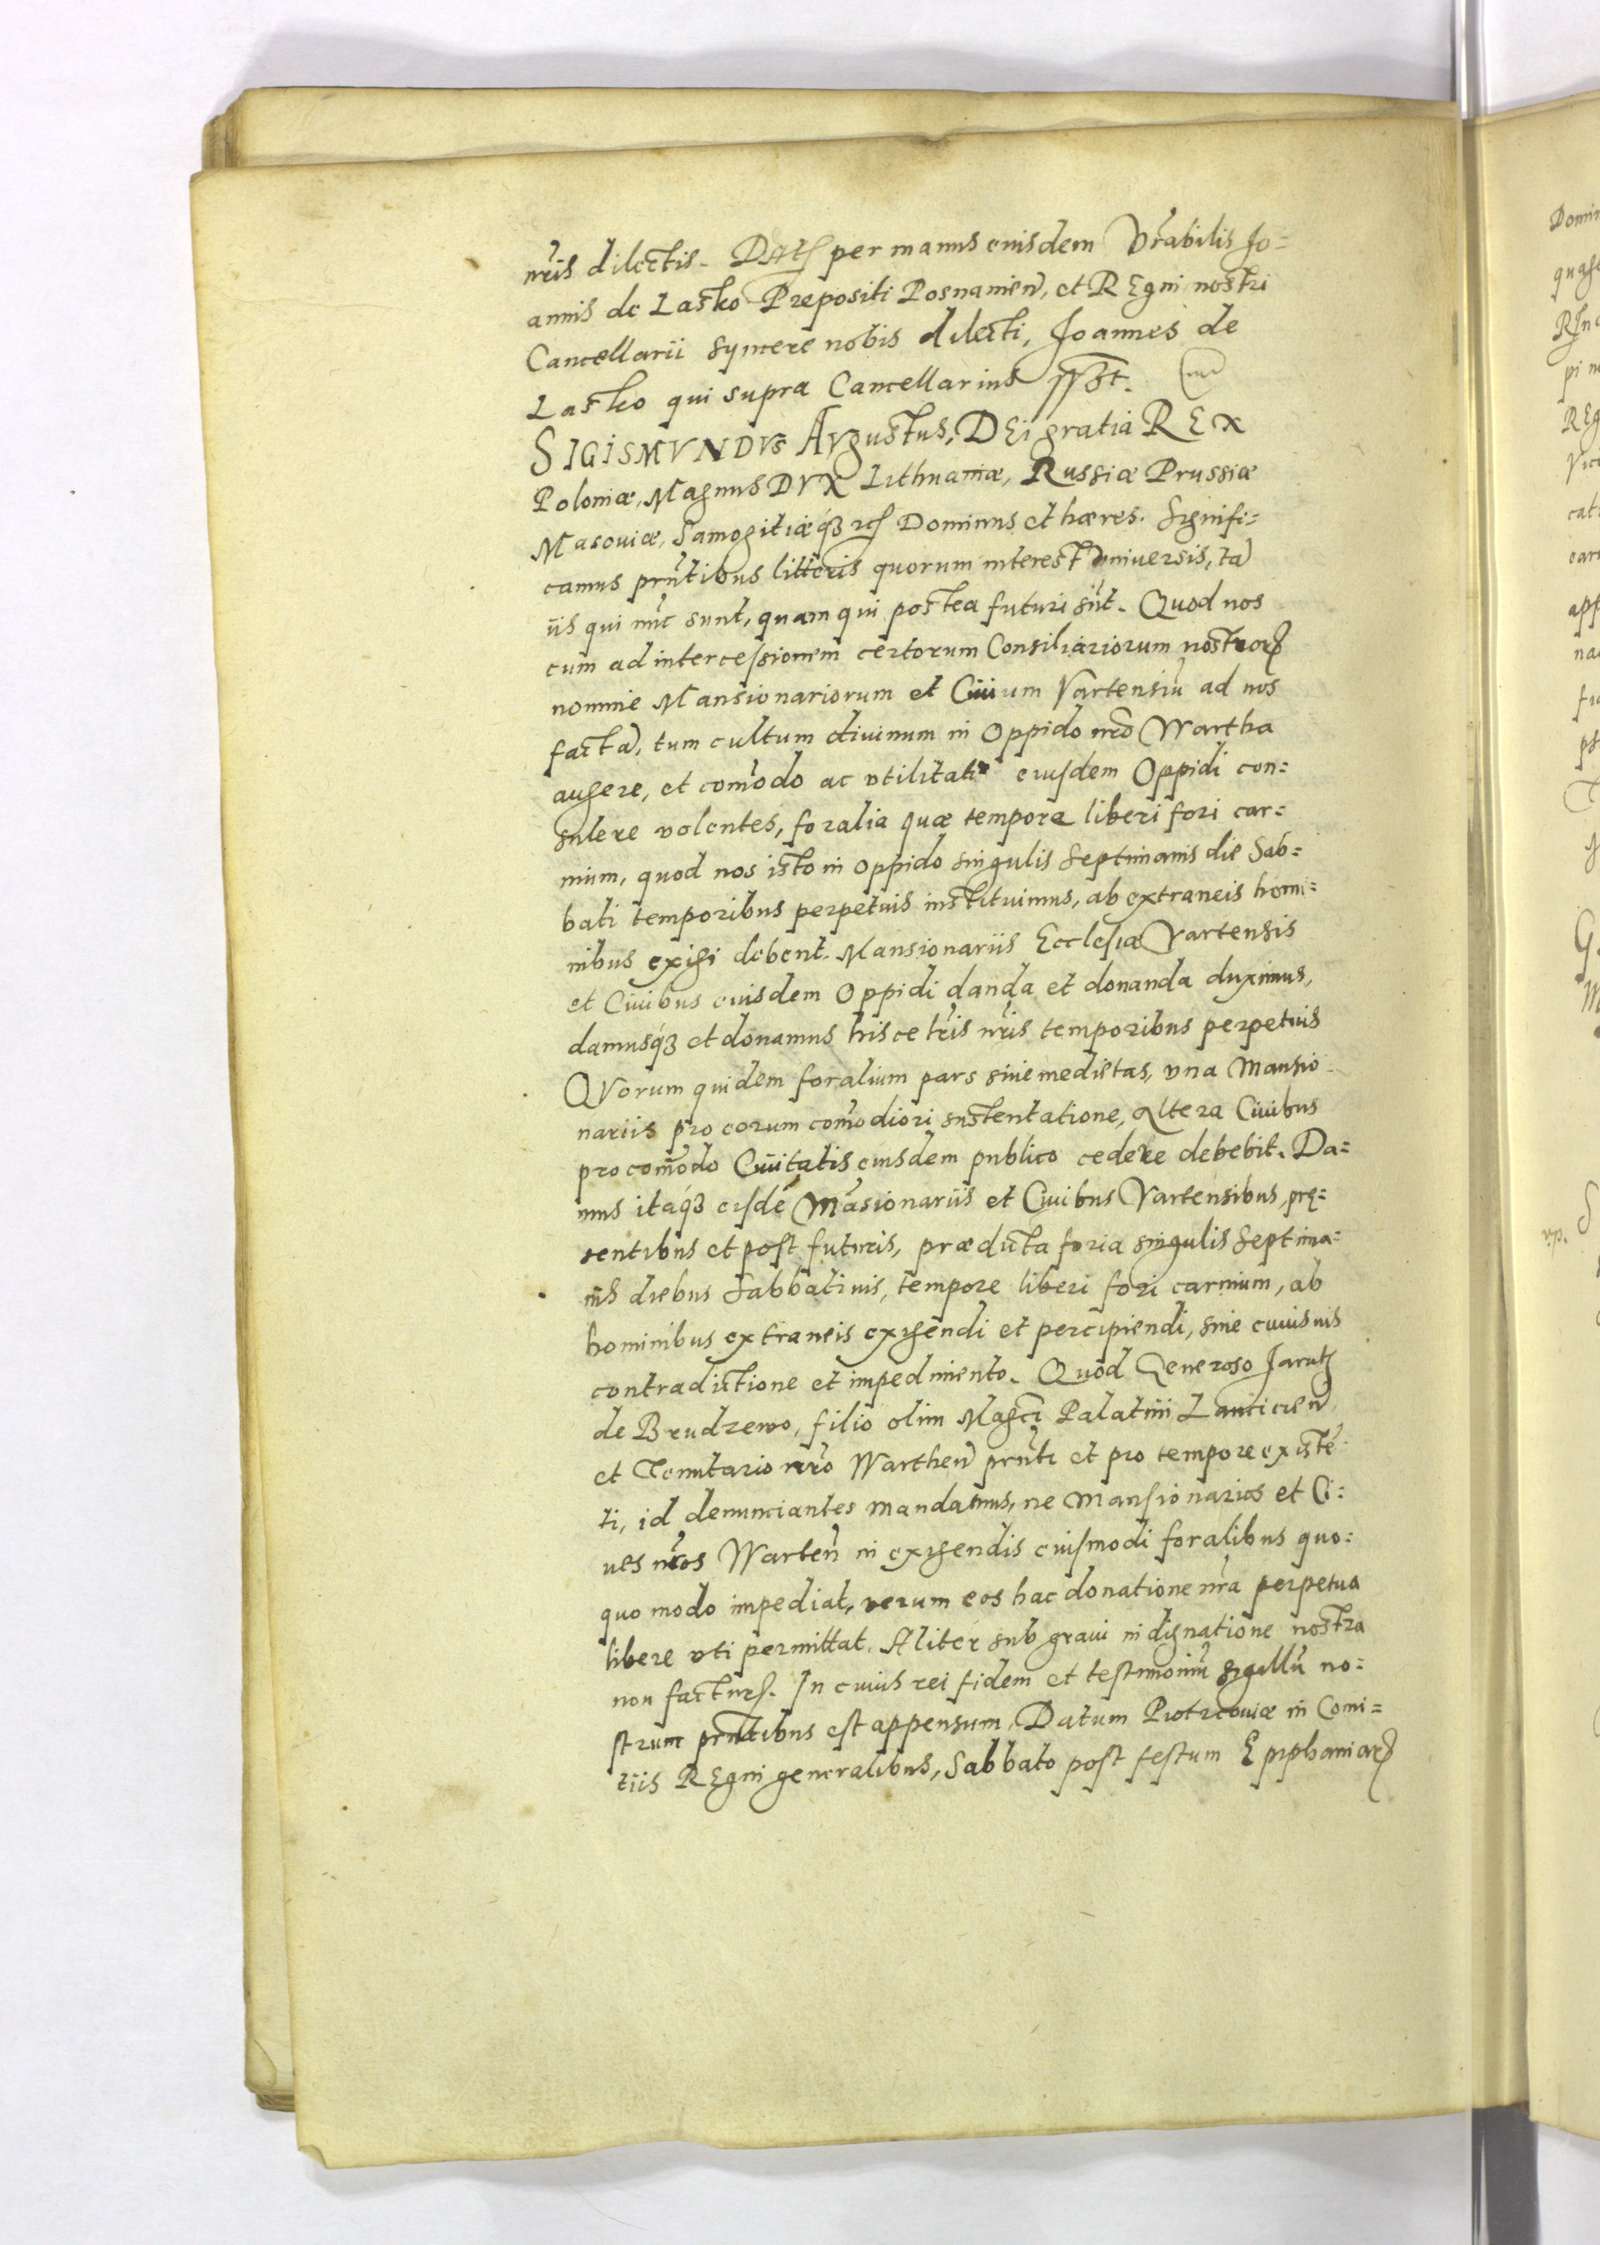 nr̃is dilectis. Dat̃ per manus euisdem Vr̃abilis Jo=
annis de Lasko Prepositi Posnanien̄, et REgni nostri
Cancellarii syncere nobis dilecti, Joannes de
Lasko qui supra Cancellarius sspst.
SIGISMVNDVS AVgustus, DEi gratia REX
Poloniæ, Magnus DVX Lithuaniæ, Russiæ Prussiæ
Masouiæ, Samogitiæq́ꝫ ꝛcꝭ Dominus et hæres. Signifi=
camus prñtibus litteris quorum interest vniversis, tā
iis qui nūc sunt, quam qui postea futuri sūt. Quod nos
cum ad intercessionem certorum Consiliariorum nostroꝝ
nomine Mansionariorum et Ciuium Vartensiū ad nos
factā, tum cultum diuinum in Oppido nr̃o Wartha
augere, et com̃odo ac vtilitati eiusdem Oppidi con=
sulere volentes, foralia quæ tempore liberi fori car=
nium, quod nos isto in oppido singulis septimanis die Sab=
bati temporibus perpetuis instituimus, ab extraneis homi=
nibus exigi debent. Mansionariis Ecclesiæ Vartensis
et Ciuibus euisdem Oppidi danda et donanda duximus,
damusq́ꝫ et donamus hisce lr̃is nr̃is temporibus perpetuis
QVorum quidem foralium pars siue medietas, vna Mansio
nariis pro eorum com̃odiori sustentatione, altera Ciuibus
pro com̃odo Ciuitatis eiusdem publico cedere debebit. Da=
mus itaq́ꝫ eisdē Māsionariis et Ciuibus Vartensibus, prę=
sentibus et post futuris, prædicta foria singulis septima=
nis diebus Sabbatinis, tempore liberi fori carnium, ab
hominibus extraneis exigendi et percipiendi, sine cuiusuis
contradictione et impedimento. Quod Generoso Jarutꝭ
de Brudzewo, filio olim Magci Palatini Lanicien̄
et Tenutario nr̃o Warthen̄ prñti et pro tempore existē=
ti, id denunciantes mandamus, ne Mansionarios et Ci=
ues nr̃os Warten̄ in exigendis euismodi foralibus quo=
quo modo impediat, verum eos hac donatione nr̃a perpetua
libere vti permittat. Aliter sub graui indignatione nostra
non facturꝭ. In cuius rei fidem et testimoniū sigillū no=
strum prñtibus est appensum. Datum Piotrcouiæ in Comi=
tiis REgni generalibus, Sabbato post festum Epiphaniaꝝ